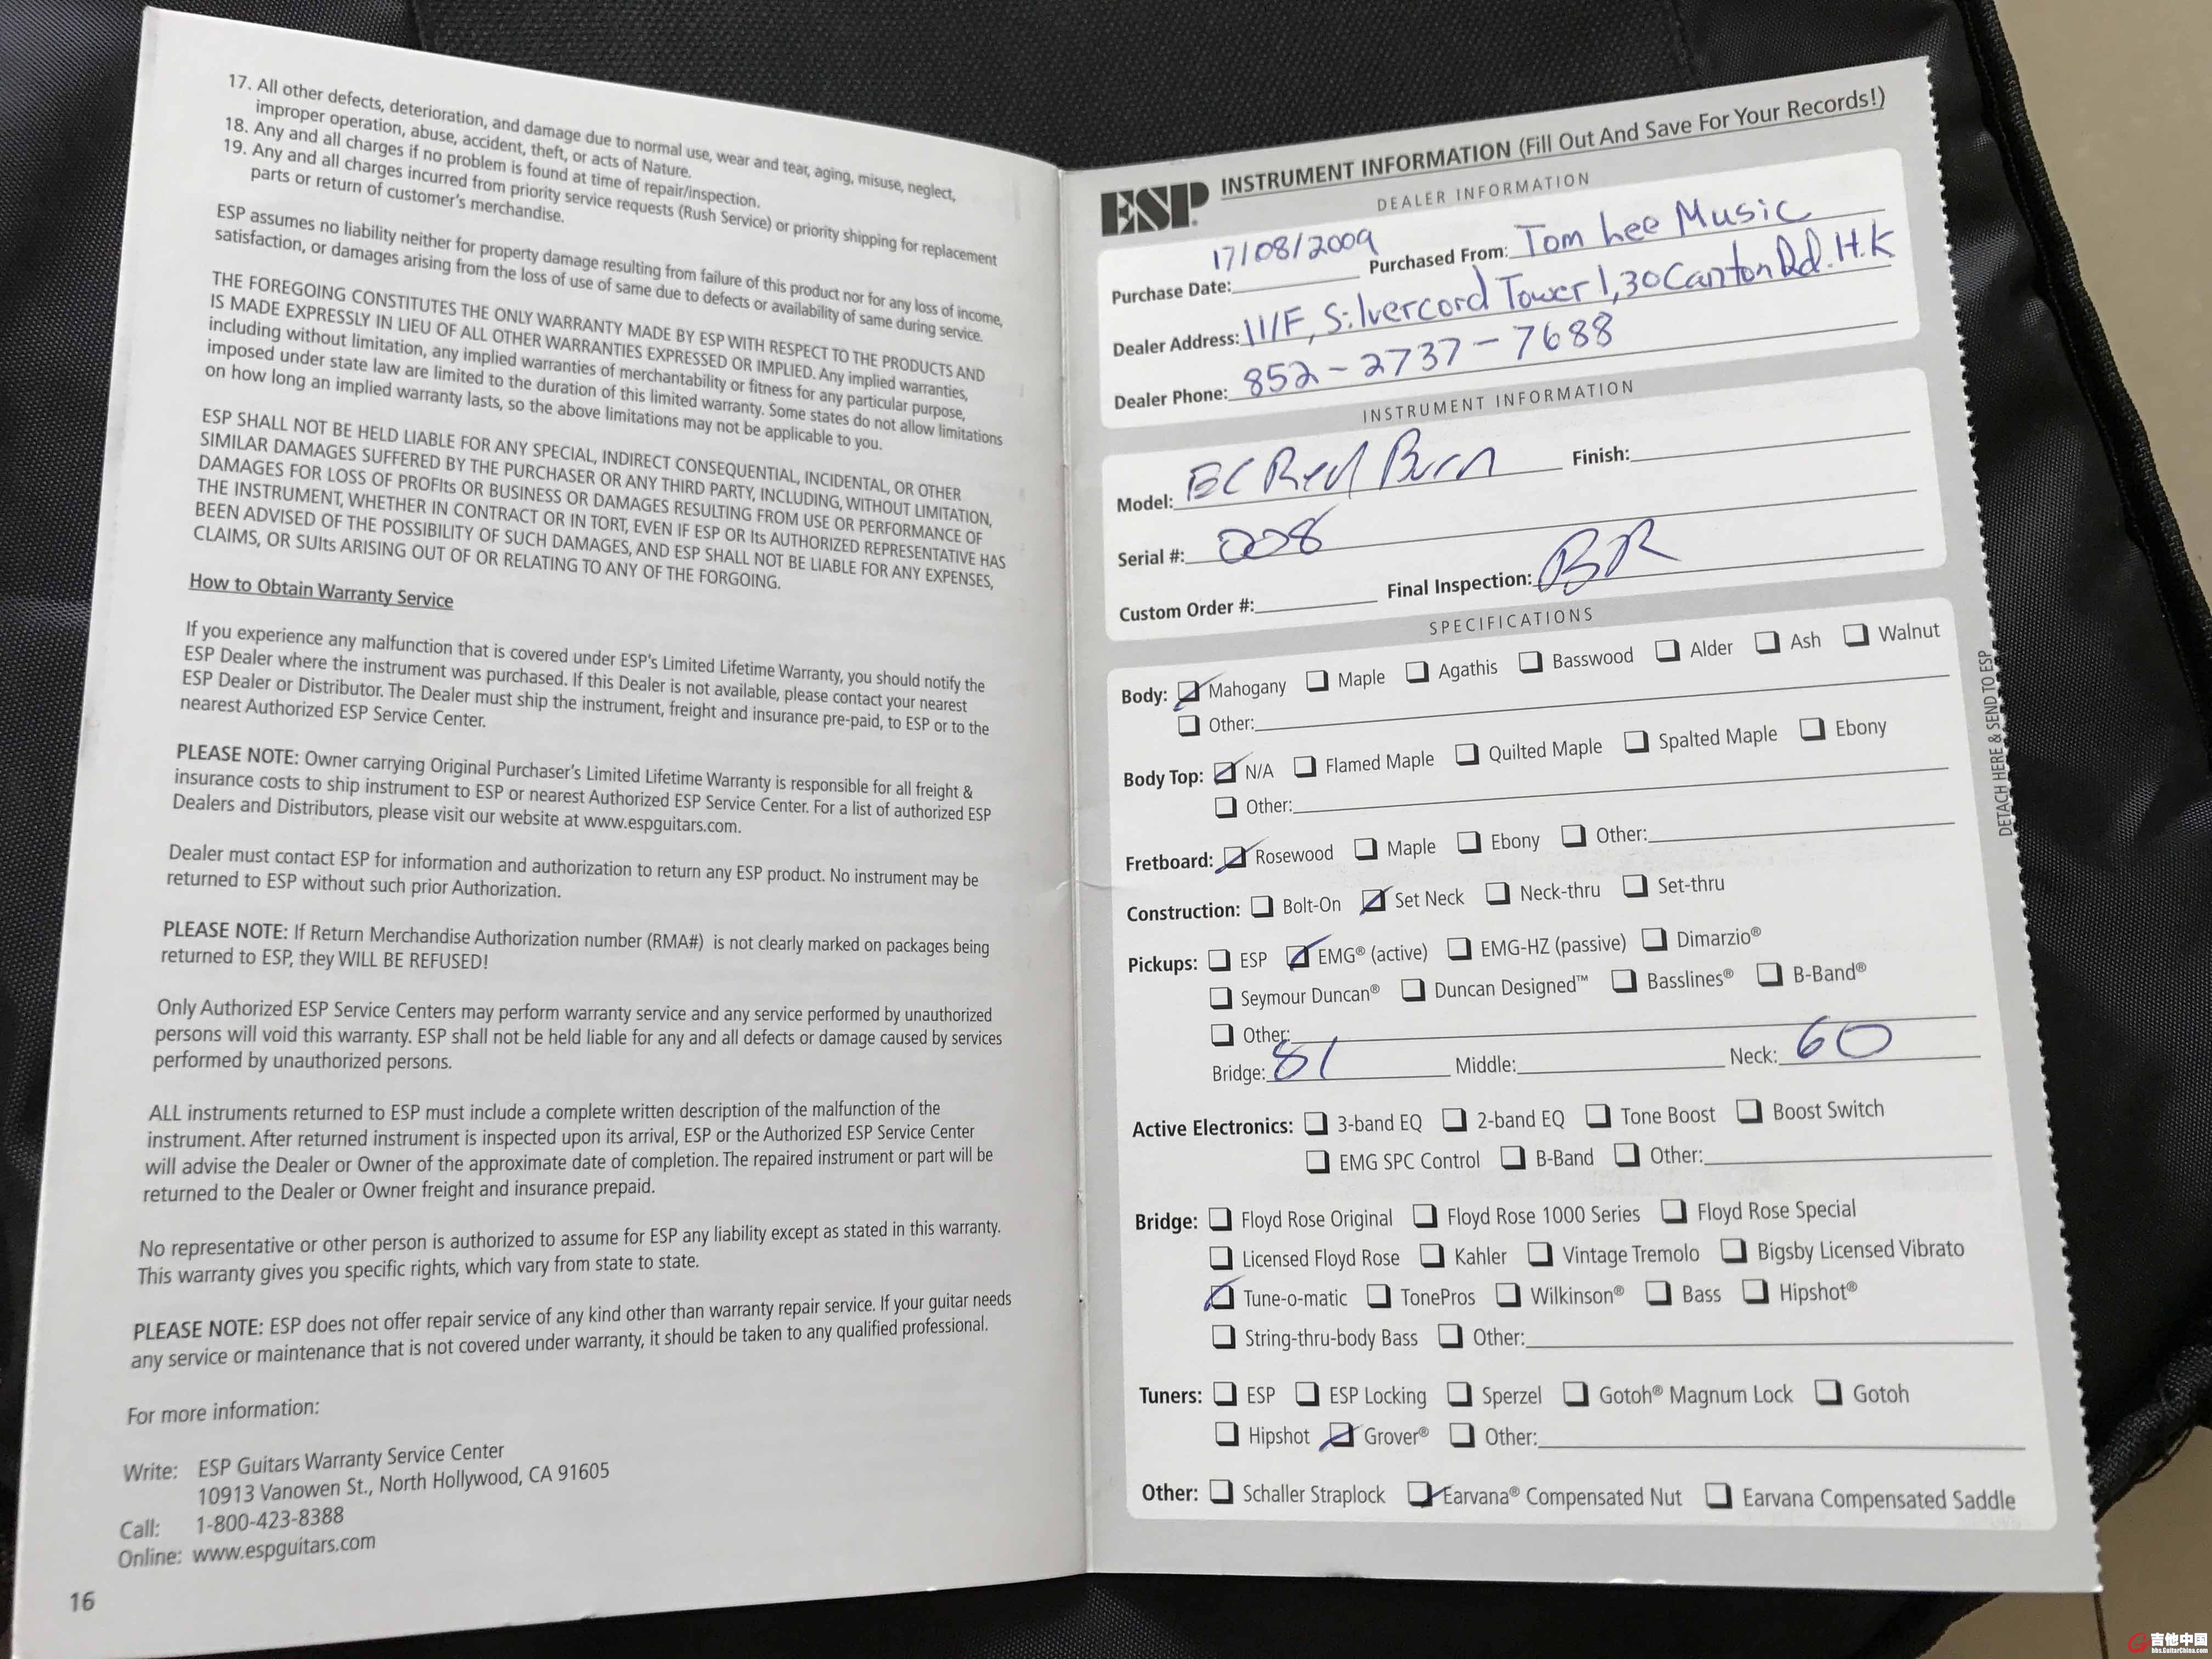 17. All other defects, deterioration, and damage due to normal use, wear and tear, aging, misuse, neglect,
improper operation, abuse, accident, theft, or acts of Nature.
18. Any and all charges if no problem is found at time of repair/inspection.
19. Any and all charges incurred from priority service requests (Rush Service) or priority shipping for replacement
parts or return of customer's merchandise.
ESP assumes no liability neither for property damage resulting from failure of this product nor for any loss of income,
satisfaction, or damages arising from the loss of use of same due to defects or availability of same during service.
THE FOREGOING CONSTITUTES THE ONLY WARRANTY MADE BY ESP WITH RESPECT TO THE PRODUCTS AND
IS MADE EXPRESSLY IN LIEU OF ALL OTHER WARRANTIES EXPRESSED OR IMPLIED. Any implied warranties,
including without limitation, any implied warranties of merchantability or fitness for any particular purpose,
imposed under state law are limited to the duration of this limited warranty. Some states do not allow limitations
on how long an implied warranty lasts, so the above limitations may not be applicable to you.
ESP SHALL NOT BE HELD LIABLE FOR ANY SPECIAL, INDIRECT CONSEQUENTIAL, INCIDENTAL, OR OTHER
SIMILAR DAMAGES SUFFERED BY THE PURCHASER OR ANY THIRD PARTY, INCLUDING, WITHOUT LIMITATION,
DAMAGES FOR LOSS OF PROFIts OR BUSINESS OR DAMAGES RESULTING FROM USE OR PERFORMANCE OF
THE INSTRUMENT, WHETHER IN CONTRACT OR IN TORT, EVEN IF ESP OR Its AUTHORIZED REPRESENTATIVE HAS
BEEN ADVISED OF THE POSSIBILITY OF SUCH DAMAGES, AND ESP SHALL NOT BE LIABLE FOR ANY EXPENSES,
CLAIMS, OR SUIts ARISING OUT OF OR RELATING TO ANY OF THE FORGOING.
How to Obtain Warranty Service
If you experience any malfunction that is covered under ESP's Limited Lifetime Warranty, you should notify the
ESP Dealer where the instrument was purchased. If this Dealer is not available, please contact your nearest
ESP Dealer or Distributor. The Dealer must ship the instrument, freight and insurance pre-paid, to ESP or to the
nearest Authorized ESP Service Center.
PLEASE NOTE: Owner carrying Original Purchaser's Limited Lifetime Warranty is responsible for all freight &
insurance costs to ship instrument to ESP or nearest Authorized ESP Service Center. For a list of authorized ESP
Dealers and Distributors, please visit our website at www.espguitars.com.
Dealer must contact ESP for information and authorization to return any ESP product. No instrument may be
returned to ESP without such prior Authorization.
PLEASE NOTE: If Return Merchandise Authorization number (RMA#) is not clearly marked on packages being
returned to ESP, they WILL BE REFUSED!
Only Authorized ESP Service Centers may perform warranty service and any service performed by unauthorized
persons will void this warranty. ESP shall not be held liable for any and all defects or damage caused by services
performed by unauthorized persons.
ALL instruments returned to ESP must include a complete written description of the malfunction of the
instrument. After returned instrument is inspected upon its arrival, ESP or the Authorized ESP Service Center
will advise the Dealer or Owner of the approximate date of completion. The repaired instrument or part will be
returned to the Dealer or Owner freight and insurance prepaid.
No representative or other person is authorized to assume for ESP any liability except as stated in this warranty.
This warranty gives you specific rights, which vary from state to state.
PLEASE NOTE: ESP does not offer repair service of any kind other than warranty repair service. If your guitar needs
any service or maintenance that is not covered under warranty, it should be taken to any qualified professional.
For more information:
Write: ESP Guitars Warranty Service Center
10913 Vanowen St., North Hollywood, CA 91605
Call: 1-800-423-8388
Online: www.espguitars.com
16
ESP INSTRUMENT INFORMATION (Fill Out And Save For Your Records!)
DEALER INFORMATION
Purchase Date: 17/08/2009 Purchased From: Tom Lee Music
Dealer Address: 11/F, Silvercord Tower 1, 30 Canton Rd. H.K
Dealer Phone: 852-2737-7688
INSTRUMENT INFORMATION
Model: EC Red Burn Finish:
Serial #: 008
Custom Order #: Final Inspection: BR
SPECIFICATIONS
Body: Mahogany Maple Agathis Basswood Alder Ash Walnut
Other:
Body Top: N/A Flamed Maple Quilted Maple Spalted Maple Ebony
Other:
Fretboard: Rosewood Maple Ebony Other:
Construction: Bolt-On Set Neck Neck-thru Set-thru
Pickups: ESP EMG® (active) EMG-HZ (passive) Dimarzio®
Seymour Duncan® Duncan Designed™ Basslines® B-Band®
Other:
Bridge: 81 Middle: Neck: 60
Active Electronics: 3-band EQ 2-band EQ Tone Boost Boost Switch
EMG SPC Control B-Band Other:
Bridge: Floyd Rose Original Floyd Rose 1000 Series Floyd Rose Special
Licensed Floyd Rose Kahler Vintage Tremolo Bigsby Licensed Vibrato
Tune-o-matic TonePros Wilkinson® Bass Hipshot®
String-thru-body Bass Other:
Tuners: ESP ESP Locking Sperzel Gotoh® Magnum Lock Gotoh
Hipshot Grover® Other:
Other: Schaller Straplock Earvana® Compensated Nut Earvana Compensated Saddle
DETACH HERE & SEND TO ESP
吉他中国
bbs.GuitarChina.com